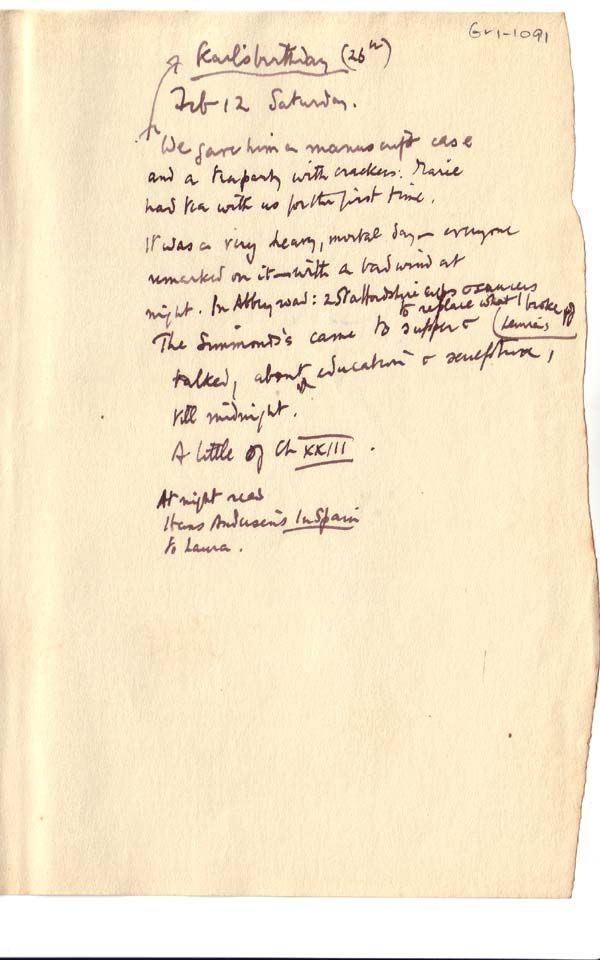 Gv1-1091
Karl's birthday (26th)
Feb 12 Saturday.
We gave him a manuscript case
and a teaparty with crackers. Marie
had tea with us for the first time.
It was a very heavy, mortal day – everyone
remarked on it – with a bad wind at
night. In Abbey road: 2 Staffordshire cups & saucers
to replace what I broke of
The Simmonds's came to supper &
talked, about education & sculpture,
till midnight.
A little of Ch XXIII.
At night read
Hans Andersen's In Spain
to Laura.